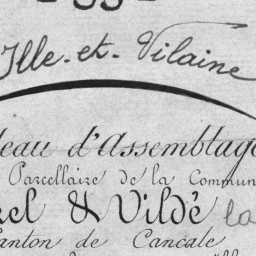 Ille-et-Vilaine
leau d'Assemblage
Parcellaire de la Commun
rel & Vildé la
anton de Cancale